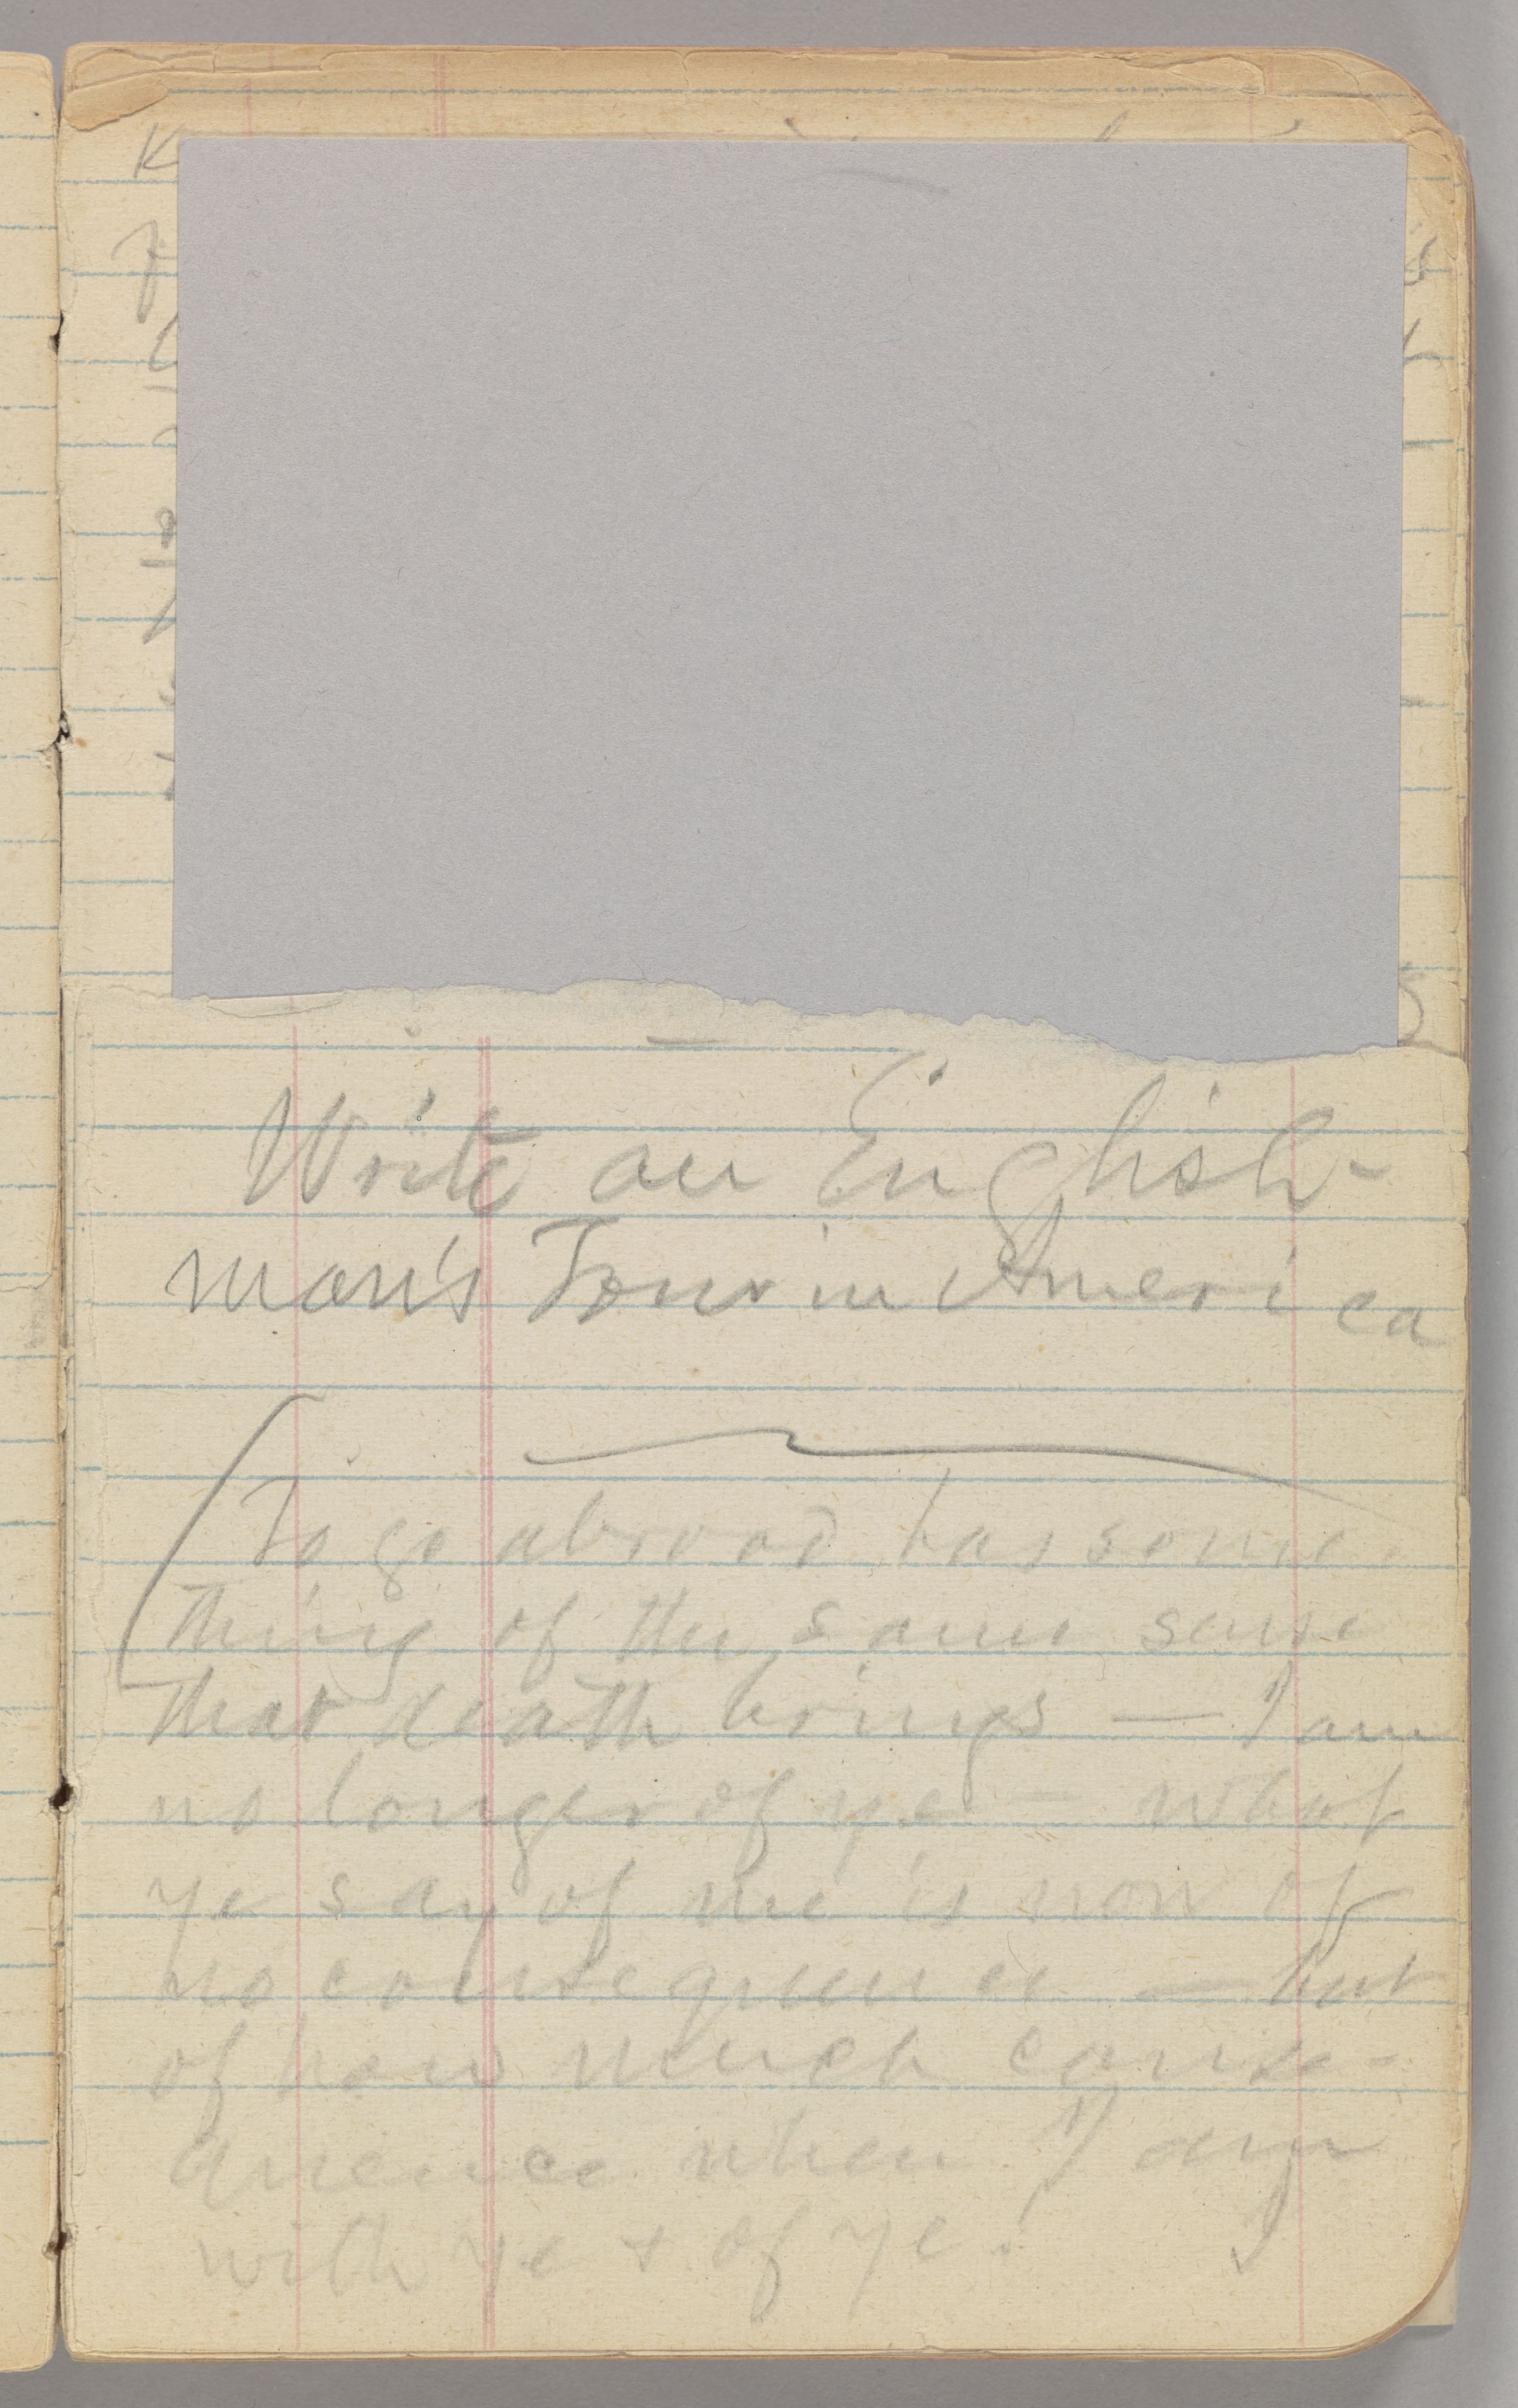 Write an English-
man's Tour in America
To go abroad has some-
thing of the same sense
that death brings — I am
no longer of ye — what
ye say of me is now of
no consequence — but
of how much conse-
quence when I am
with ye & of ye.